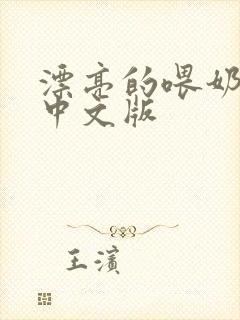 漂亮的喂奶
中文版
王濱